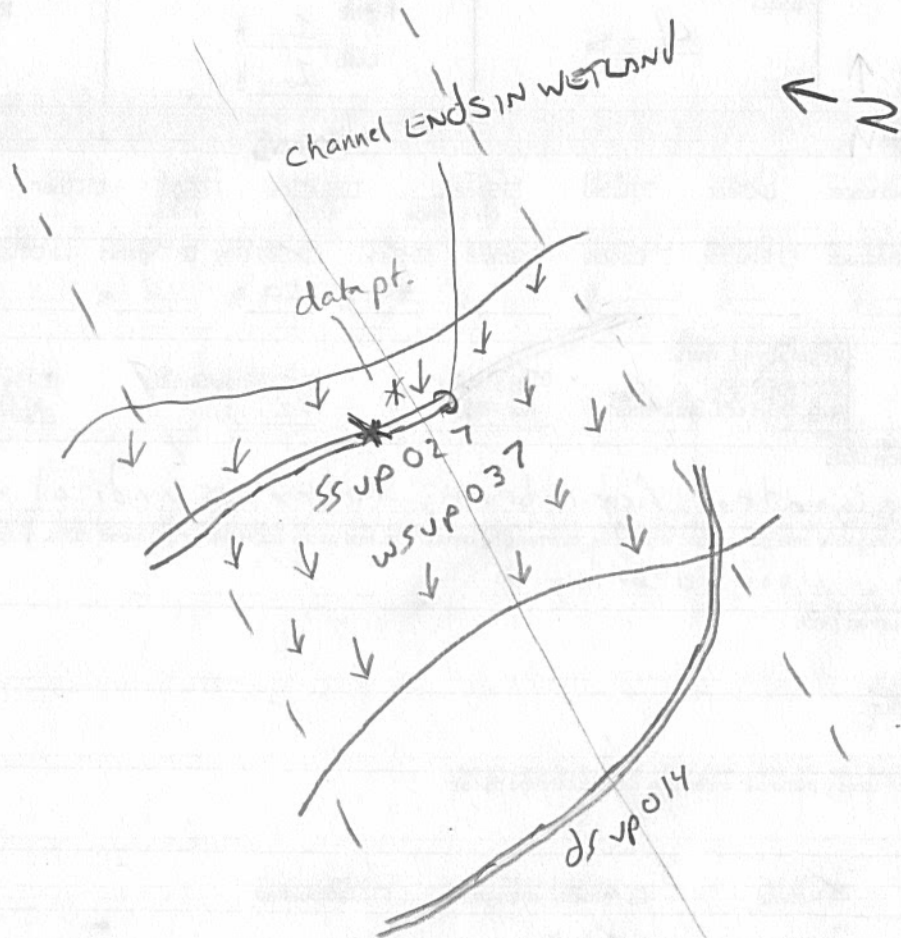 Channel ENDS IN WETLAND
N
data pt.
ss vp 027
ws vp 037
ds vp 014